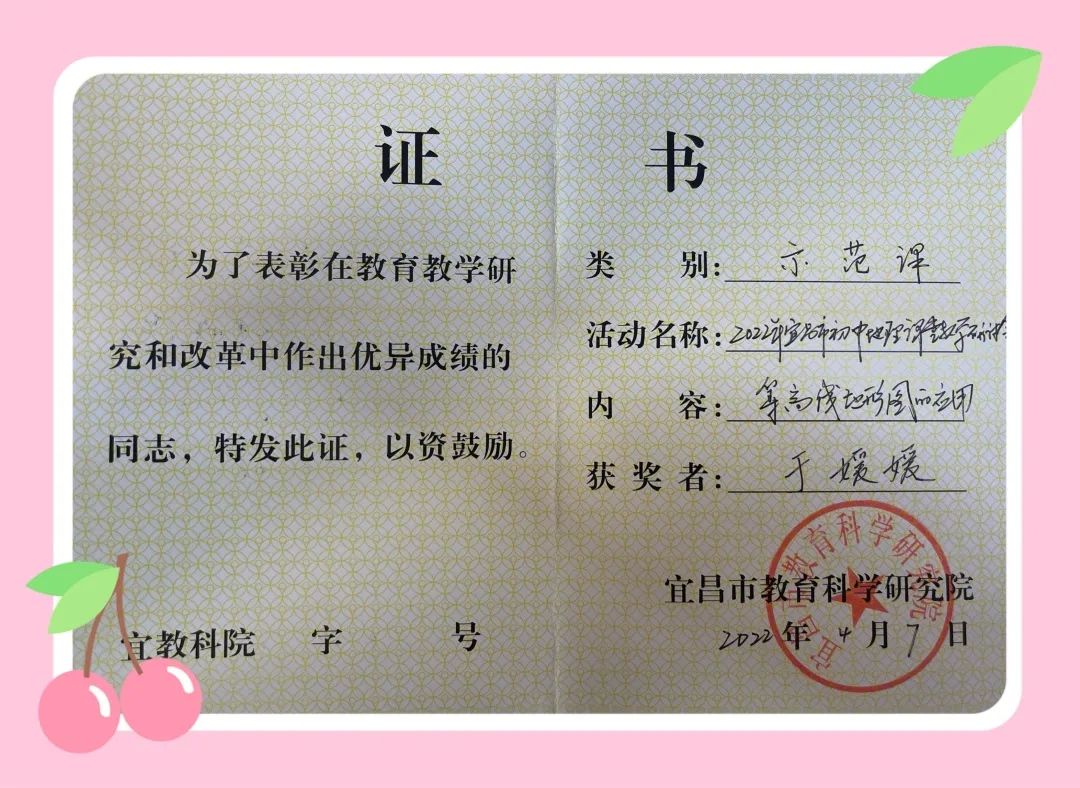 证 书
为了表彰在教育教学研
究和改革中作出优异成绩的
同志，特发此证，以资鼓励。
宜教科院 字 号
类 别：示范课
活动名称：2022年宜昌市初中地理课堂教学研讨会
内 容：等高线地形图的应用
获奖者：于媛媛
宜昌市教育科学研究院
2022年4月7日
宜昌市教育科学研究院